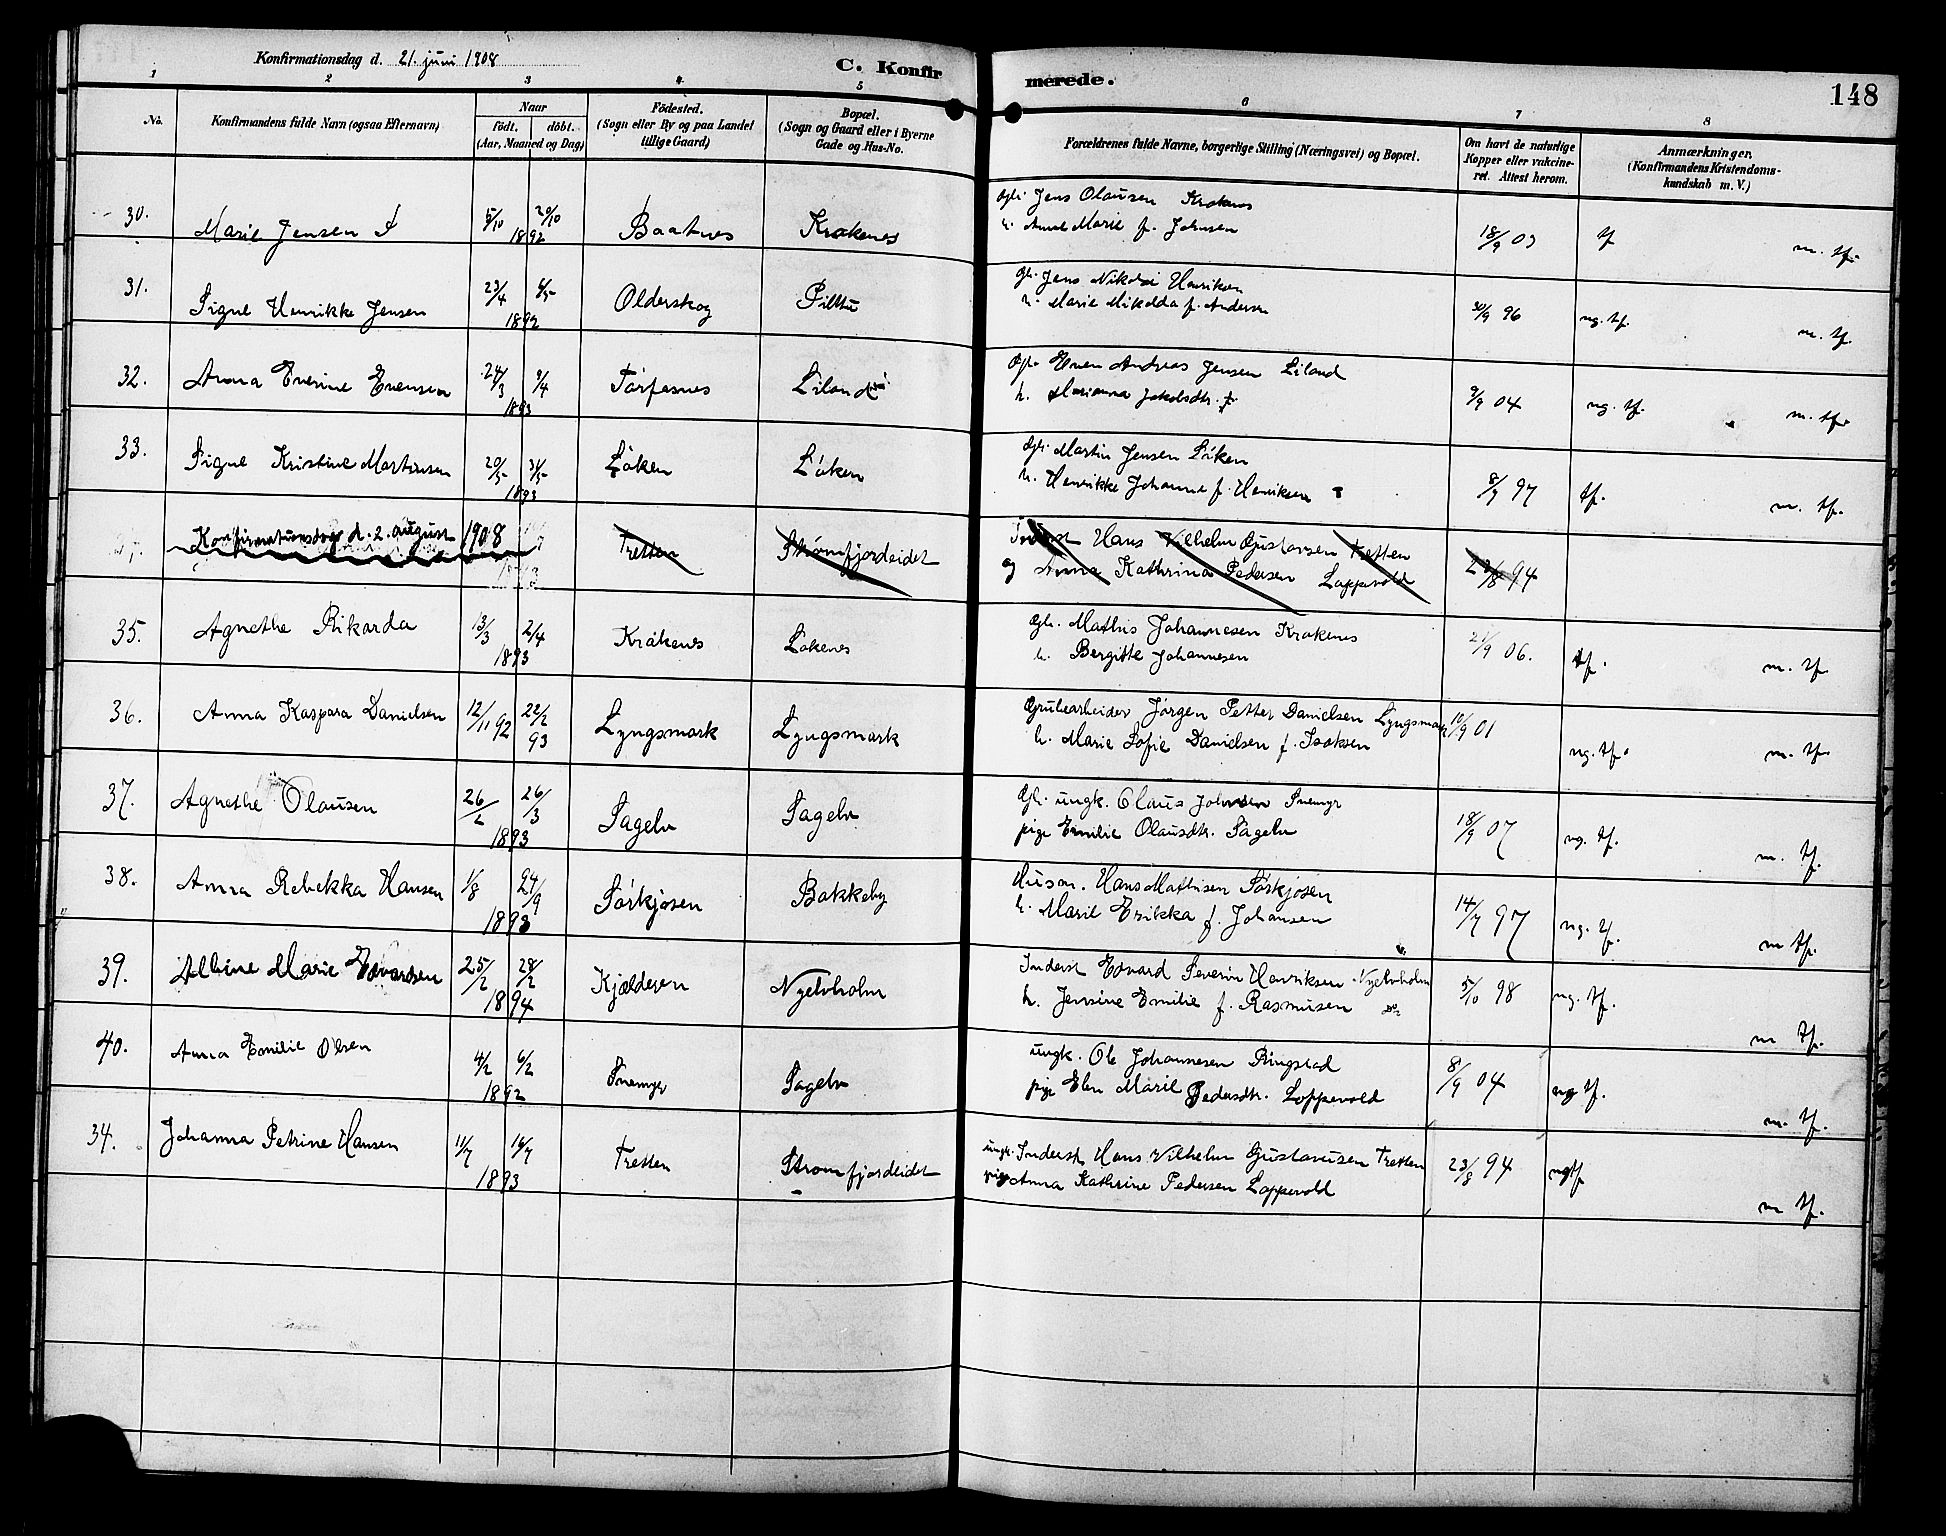 Konfirmationsdag d. 21. juni 1908
C. Konfirmerede.
148
1 2 3 4 5 6 7 8
No.
Konfirmandens fulde Navn (ogsaa Efternavn)
Naar
födt. döbt.
(Aar, Maaned og Dag)
Födested.
(Sogn eller By og paa Landet
tillige Gaard)
Bopæl.
(Sogn og Gaard eller i Byerne
Gade og Hus-No.
Forældrenes fulde Navne, borgerlige Stilling (Næringsvei) og Bopæl.
Om havt de naturlige
Kopper eller vakcine-
ret. Attest herom.
Anmærkninger.
(Konfirmandens Kristendoms-
kundskab m. V.)
30. Marie Jensen 5/10 20/10 1892 Baatnes Krakenes
Jens Olausen Krakenes
h. Anne Marie f. Johnsen
18/9 03 tf m. tf.
31. Signe Henrikke Jensen 23/4 1892 Olderskog
Gbr. Jens Nikolai Henriksen
h. Marie f. Andersen
30/9 96 mg. tf. m. tf.
32. Anna Everine Evensen 24/3 9/4 1893 Torfasnes Liland
Gbr. Even Andreas Jensen Liland
h. Marianna Jakobsdtr. f.
9/9 04 mg. tf. m. tf.
33. Signe Kristine Martinsen 20/5 31/5 1893 Löken Löken
Gbr. Martin Jensen Löken
h. Henrikke Johanne f. Henriksen
8/9 97 tf. m. tf.
Konfirmationsdag d. 2. august 1908
Tretten Strømfjordeidet
Inderst Hans Vilhelm Gustavsen Tretten
og Anna Kathrina Pedersen Loppevold
23/8 94
35. Agnethe Rikarda 13/3 2/4 1893 Kråkenes Lokenes
Gbr. Mathis Johannesen Krakenes
h. Bergitte Johannesen
21/9 06. tf. m. tf.
36. Anna Kaspara Danielsen 12/11 92 22/2 93 Lyngsmark Lyngsmark
Grubearbeider Jörgen Petter Danielsen Lyngsmark
h. Marie Sofie Danielsen f. Isaksen
10/9 01 mg. tf. m. tf.
37. Agnethe Olausen 26/2 26/3 1893 Sagelv Sagelv
Gbr. ungk. Olaus Johnsen Snemyr
pige Emilie Olausdtr. Sagelv
18/9 07 mg. tf. m. tf.
38. Anna Rebekka Hansen 1/8 24/9 1893 Sörkjosen Bakkeby
Husm. Hans Mathisen Sörkjosen
h. Marie Erikka f. Johansen
14/7 97 mg. tf. m tf.
39. Albine Marie Edvardsen 25/2 28/2 1894 Kjælderen Nyelvholm
Inderst Edvard Severin Henriksen Nyelvholm
h. Jensine Emilie f. Rasmusen do
5/10 98 mg. tf. m tf.
40. Anna Emilie Olsen 4/2 6/2 1892 Snemyr Sagelv
ungk. Ole Johannesen Ringstad
pige Elen Marie Pedersdtr. Loppevold
8/9 04 mg tf. m. tf.
34. Johanna Petrine Hansen 11/7 16/7 1893 Tretten Strømfjordeidet
ungk. Inderst Hans Vilhelm Gustavusen Tretten
pige Anna Kathrine Pedersen Loppevold
23/8 94 mg tf m tf.